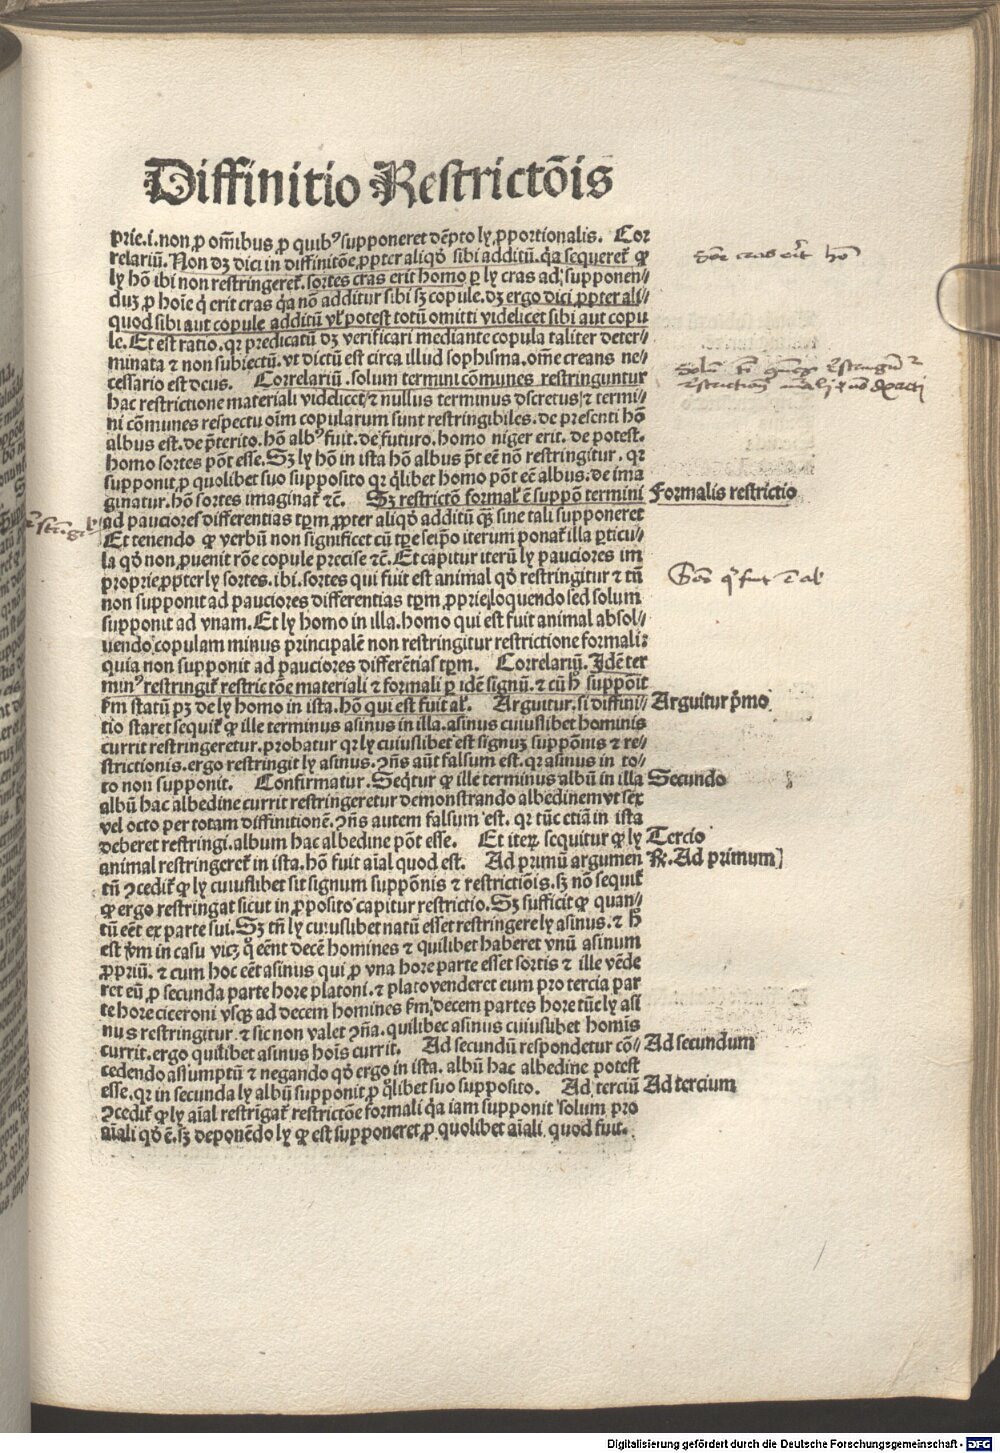 Diffinitio Restrictōis
prie.i.non ꝓ om̄ibus ꝓ quibꝰ supponeret dēpto ly ꝓportionalis. Cor
relariū. Non dꝫ dici in diffinitōe ꝓpter aliqḋ sibi additū. q̇a sequeret̄ ꝙ
ly hō ibi non restringeret̄. sortes cras erit homo ꝑ ly cras ad supponen-
duꝫ ꝓ hoīe q̇ erit cras q̇a nō additur sibi sꝫ copule. dꝫ ergo dici ꝓpter ali//
quod sibi aut copule additū vl̄ potest totū omitti videlicet sibi aut copu
le. Et est ratio. qꝛ predicatū dꝫ verificari mediante copula taliter deter-
minata ⁊ non subiectū. vt dictū est circa illud sophisma. om̄e creans ne-
cessario est deus. Correlariū. solum termini cōmunes restringuntur
hac restrictione materiali videlicet/ ⁊ nullus terminus dscretus/ ⁊ termi-
ni cōmunes respectu oīm copularum sunt restringibiles. de presenti hō
albus est. de p̄terito. hō albꝰ fuit. de futuro. homo niger erit. de potest.
homo sortes pōt esse. Sꝫ ly hō in ista hō albus pōt eē nō restringitur. qꝛ
supponit ꝓ quolibet suo supposito qꝛ q̇libet homo pōt eē albus. de ima
ginatur. hō sortes imaginat̄ ⁊c̄. Sꝫ restrictō formal̄ ē suppō termini
ad pauciores differentias tp̄m ꝓpter aliqḋ additū qꝫ sine tali supponeret
Et tenendo ꝙ verbū non significet cū tp̄e seip̄o iterum ponat̄ illa ꝑticu-
la qḋ non ꝓuenit rōe copule precise ⁊c̄. Et capitur iterū ly pauciores im
proprie ꝓpter ly sortes. ibi. sortes qui fuit est animal qḋ restringitur ⁊ tn̄
non supponit ad pauciores differentias tp̄m ꝓprie loquendo sed solum
supponit ad vnam. Et ly homo in illa. homo qui est fuit animal absol/
uendo copulam minus principalē non restringitur restrictione formali:
quia non supponit ad pauciores differētias tp̄m. Correlariū. Idē ter
minꝰ restringit̄ restrictōe materiali ⁊ formali ꝑ idē signū. ⁊ cū h̄ supponit
fm̄ statū pꝫ de ly homo in ista. hō qui est fuit al̄. Arguitur. si diffini/
tio staret sequit̄ ꝙ ille terminus asinus in illa. asinus cuiuslibet hominis
currit restringeretur. probatur qꝛ ly cuiuslibet est signuꝫ suppōnis ⁊ re//
strictionis. ergo restringit ly asinus. ꝯn̄s aūt falsum est. qꝛ asinus in to/
to non supponit. Confirmatur. Seq̄tur ꝙ ille terminus albū in illa
albū hac albedine currit restringeretur demonstrando albedinem vt sex
vel octo per totam diffinitionē. ꝯn̄s autem falsum est. qꝛ tūc etiā in ista
deberet restringi. album hac albedine pōt esse. Et iteꝝ sequitur ꝙ ly
animal restringeret̄ in ista. hō fuit aīal quod est. Ad primū argumen
tū ꝯcedit̄ ꝙ ly cuiuslibet sit signum suppōnis ⁊ restrictiōis. sꝫ nō sequit̄
ꝙ ergo restringat sicut in ꝓposito capitur restrictio. Sꝫ sufficit ꝙ quan/
tū eēt ex parte sui. Sꝫ tn̄ ly cuiuslibet natū esset restringere ly asinus. ⁊ h̄
est verum in casu vicꝫ q̇ eēnt decē homines ⁊ quilibet haberet vnū asinum
ꝓpriū. ⁊ cum hoc eēt asinus qui ꝓ vna hore parte esset sortis ⁊ ille vēde
ret eū ꝓ secunda parte hore platoni. ⁊ plato venderet eum pro tercia par
te hore ciceroni vsqꝫ ad decem homines fm̄ decem partes hore tūc ly asi
nus restringitur ⁊ sic non valet ꝯn̄a. quilibec asinus cuiuslibet homīs
currit. ergo quilibet asinus hoīs currit. Ad secundū respondetur cō/
cedendo assumptū ⁊ negando qḋ ergo in ista. albū hac albedine potest
esse. qꝛ in secunda ly albū supponit ꝓ q̇libet suo supposito. Ad terciū
ꝯcedit̄ ꝙ ly aīal restrigat̄ restrictōe formali q̇a iam supponit solum pro
aīali qḋ ē. sꝫ deponēdo ly ꝙ est supponeret ꝓ quolibet aīali quod fuit.
Formalis restrictio
Arguitur p̄mo
Secundo
Tercio
R̄. Ad primum
Ad secundum
Ad tercium
Digitalisierung gefördert durch die Deutsche Forschungsgemeinschaft - DFG